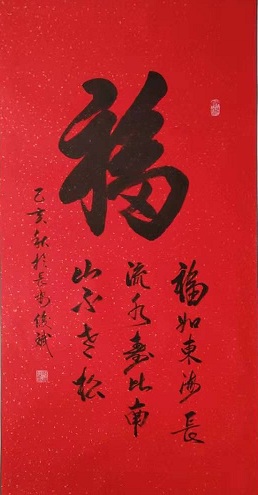 福
福如東海長
流水壽比南
山不老松
己亥秋於長安